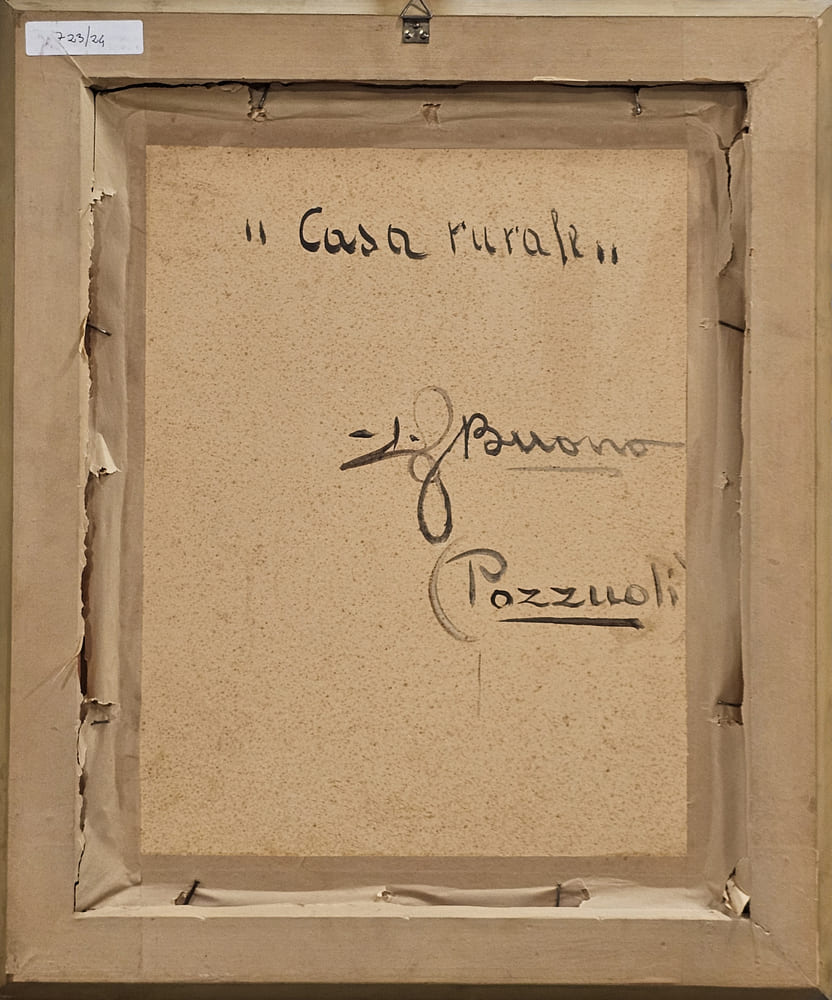 723/24
" Casa rurale "
Buono
(Pozzuoli)